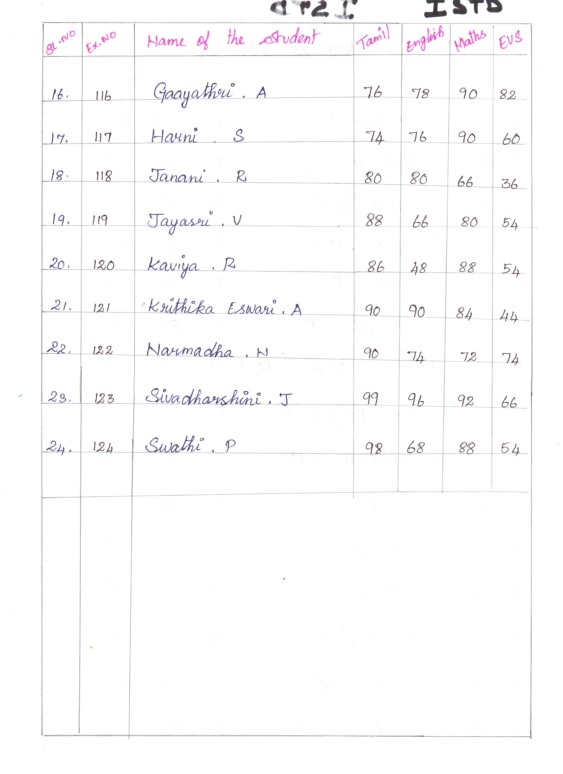 I STD
Sl.NO Ex.NO Name of the Student Tamil English Maths EVS
16. 116 Gaayathri . A 76 78 90 82
17. 117 Harni . S 74 76 90 60
18. 118 Janani . R 80 80 66 36
19. 119 Jayasri . V 88 66 80 54
20. 120 Kaviya . R 86 48 88 54
21. 121 Krithika Eswari . A 90 90 84 44
22. 122 Narmadha . N 90 74 72 74
23. 123 Sivadharshini . J 99 96 92 66
24. 124 Swathi . P 98 68 88 54